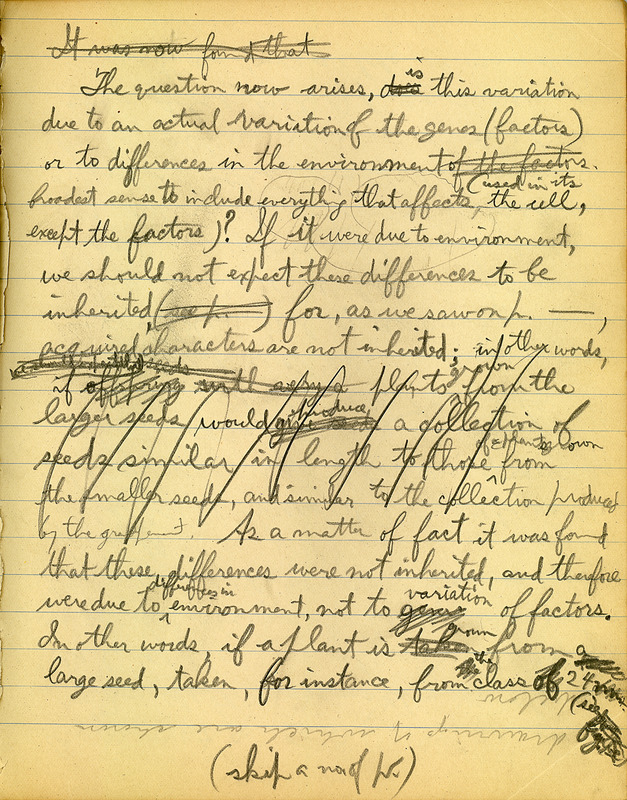 It was now found that
The question now arises, does is this variation
due to an actual variation of the genes (factors)
or to differences in the environment of the factors.
(used in its
broadest sense to include everything that affects the cell,
except the factors)? If it were due to environment,
we should not expect these differences to be
inherited, (see p. ) for, as we saw on p. —,
acquired characters are not inherited; in other words,
seeds
if offspring plants grown from the
larger seeds would produce a collection of
seeds similar in length to those from
of plants grown
the smaller seeds, and similar to the collection produced
by the parent. As a matter of fact it was found
that these differences were not inherited, and therefore
were due to differences in environment, not to genes variation of factors.
In other words, if a plant is taken grown from a
large seed, taken, for instance, from the class of 24 mm
(see
below
drawings of which are shown
(skip a no. of pp.)